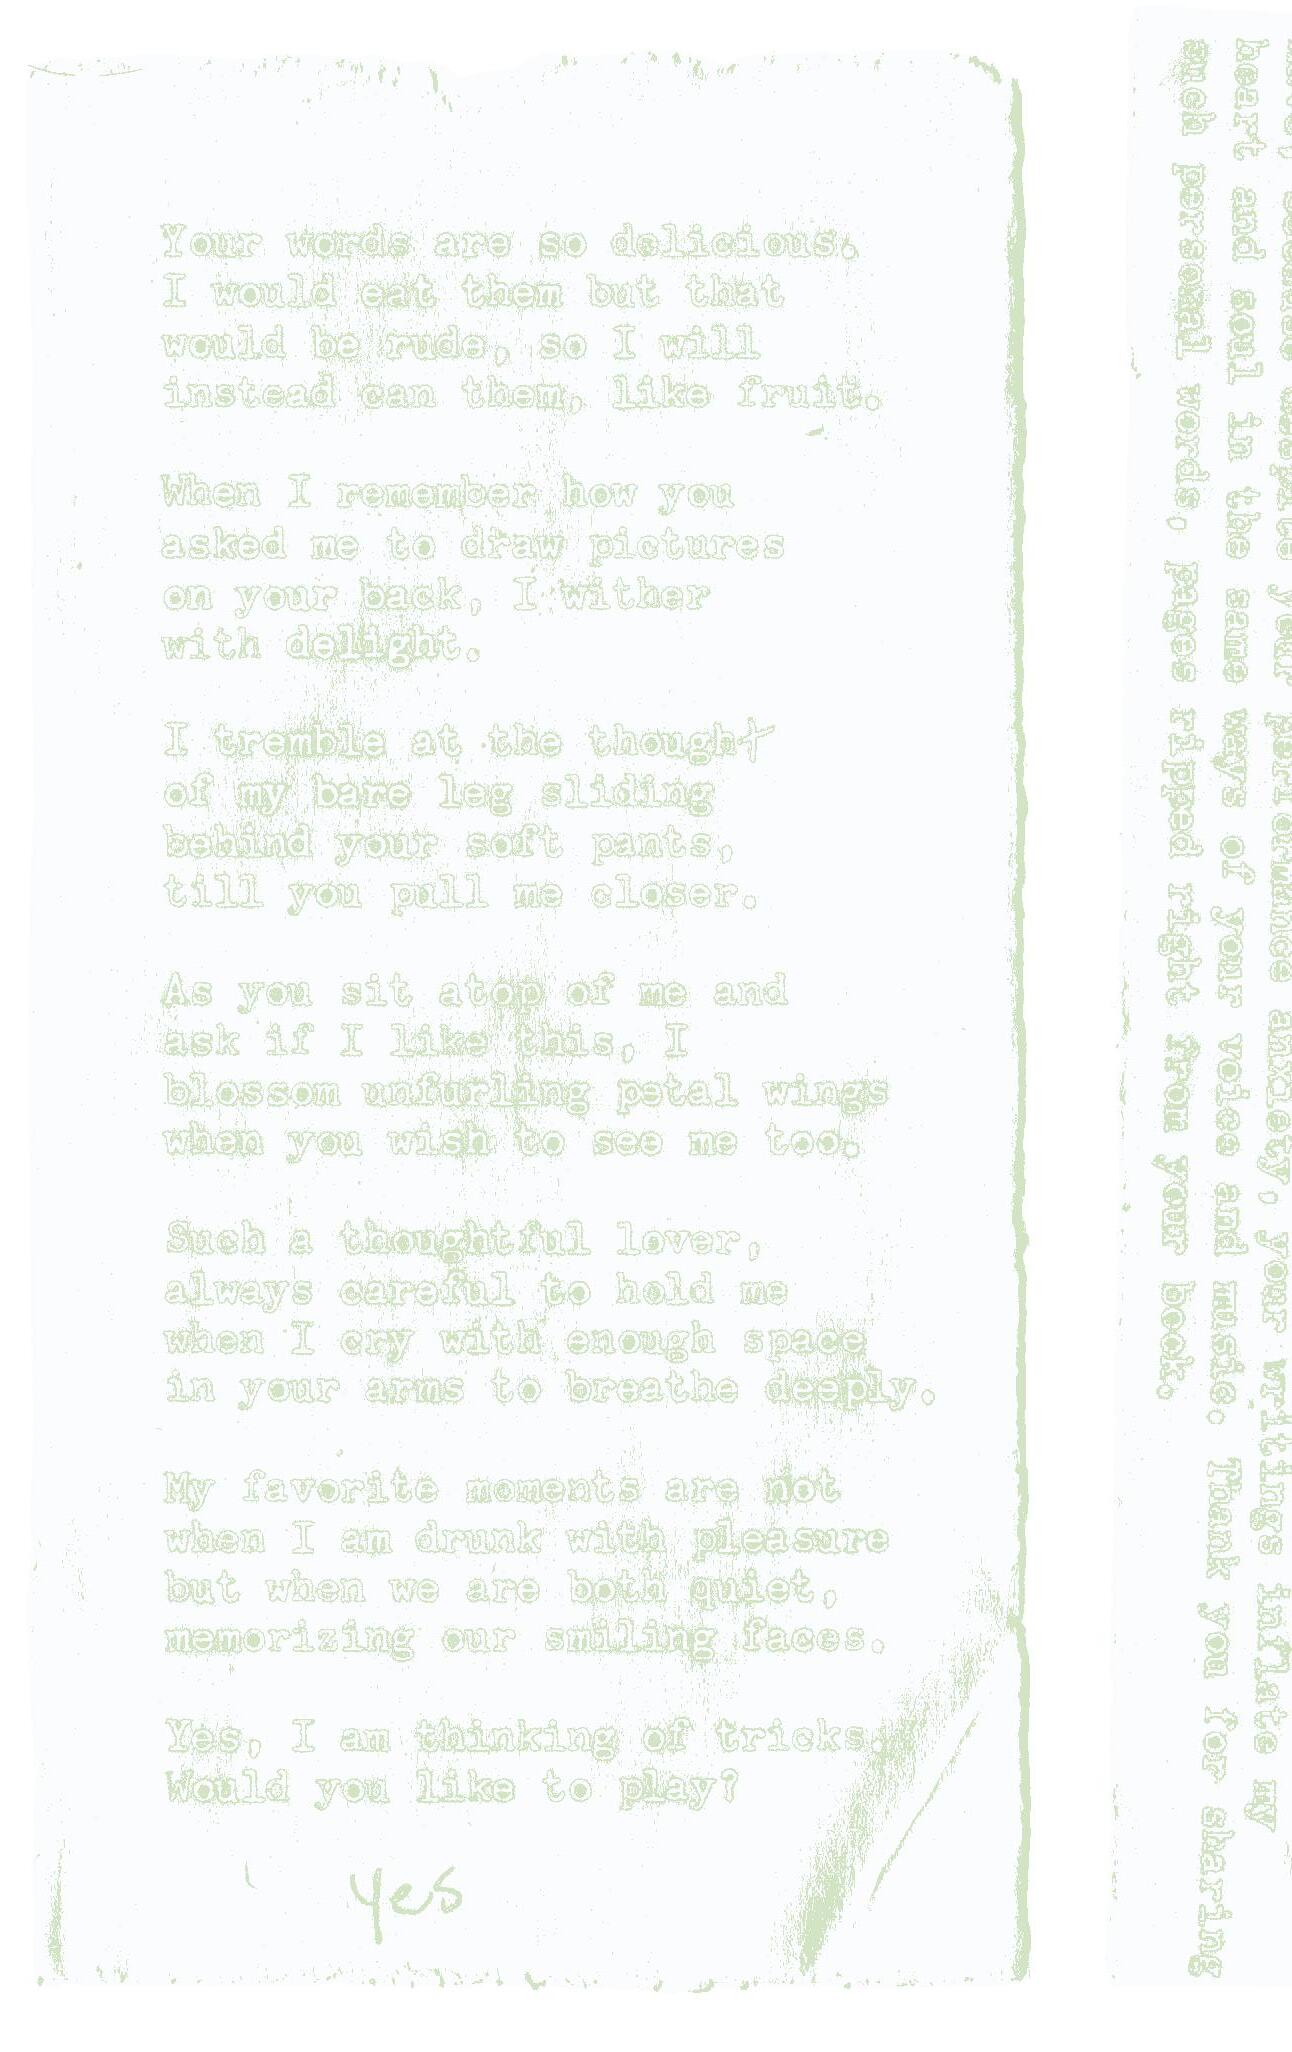 Your words are so delicious.
I would eat them but that
would be rude, so I will
instead can them, like fruit.

When I remember how you
asked me to draw pictures
on your back, I wither
with delight.

I tremble at the thought
of my bare leg sliding
behind your soft pants,
till you pull me closer.

As you sit atop of me and
ask if I like this, I
blossom unfurling petal wings
when you wish to see me too.

Such a thoughtful lover,
always careful to hold me
when I cry with enough space
in your arms to breathe deeply.

My favorite moments are not
when I am drunk with pleasure
but when we are both quiet,
memorizing our smiling faces.

Yes, I am thinking of tricks.
Would you like to play?

yes

performance anxiety, your writings inflate my
heart and soul in the same ways of your voice and music. Thank you for sharing
such personal words, pages ripped right from your book.